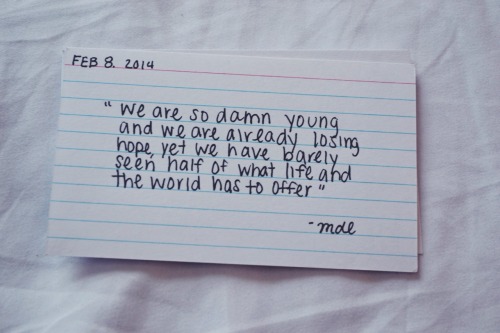 FEB 8. 2014
"we are so damn young
and we are already losing
hope, yet we have barely
seen half of what life and
the world has to offer"
-mde